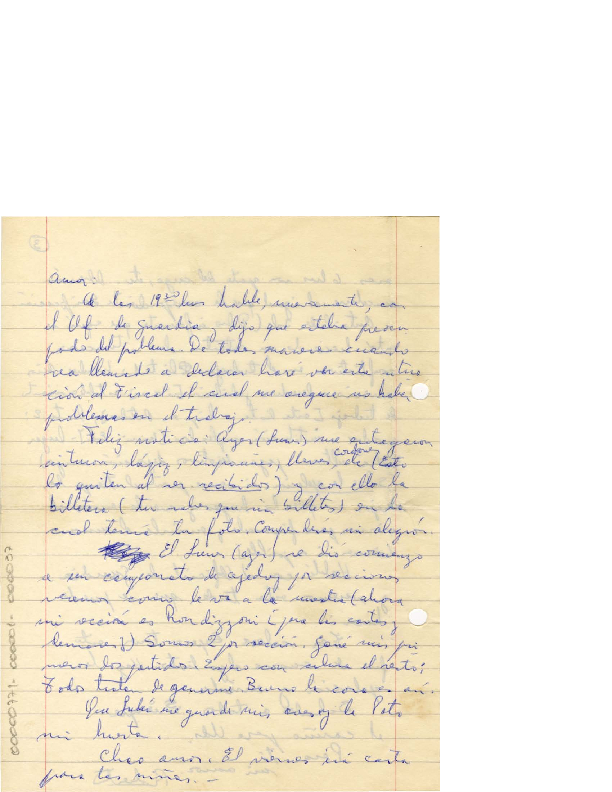 Amor:
A las 19:30 hrs hablé, nuevamente, con
el Of. de guardia y dijo que estaba preocu
pado del problema. De todas maneras cuando
sea llamado a declarar haré ver esta situa
ción al Fiscal el cual me asegure no haber
problemas en el trabajo.
Feliz noticia: Ayer (Lunes) me entregaron
cinturón, lápiz, limpiauñas, llaves, cordones, etc (Esto
lo quitan al ser recibidos) y con ello la
billetera (tu sabes que sin billetes) en la
cual tenía tu foto. Comprenderás mi alegría.
El Lunes (ayer) se dio comienzo
a un campeonato de ajedrez por secciones
veamos como le va a la nuestra (ahora
mi sección es Rondizzoni (para las cartas y
demases)) Somos 2 por sección. Gané mis pri
meros dos partidos. Espero con calma el resto;
Todos tratan de ganarme. Bueno la cosa es así.
Que Luchi me guarde mis cosas y la Pato
mi huerta.
Chao amor. El viernes mi carta
para las niñas. –
00000771- 000001- 000007